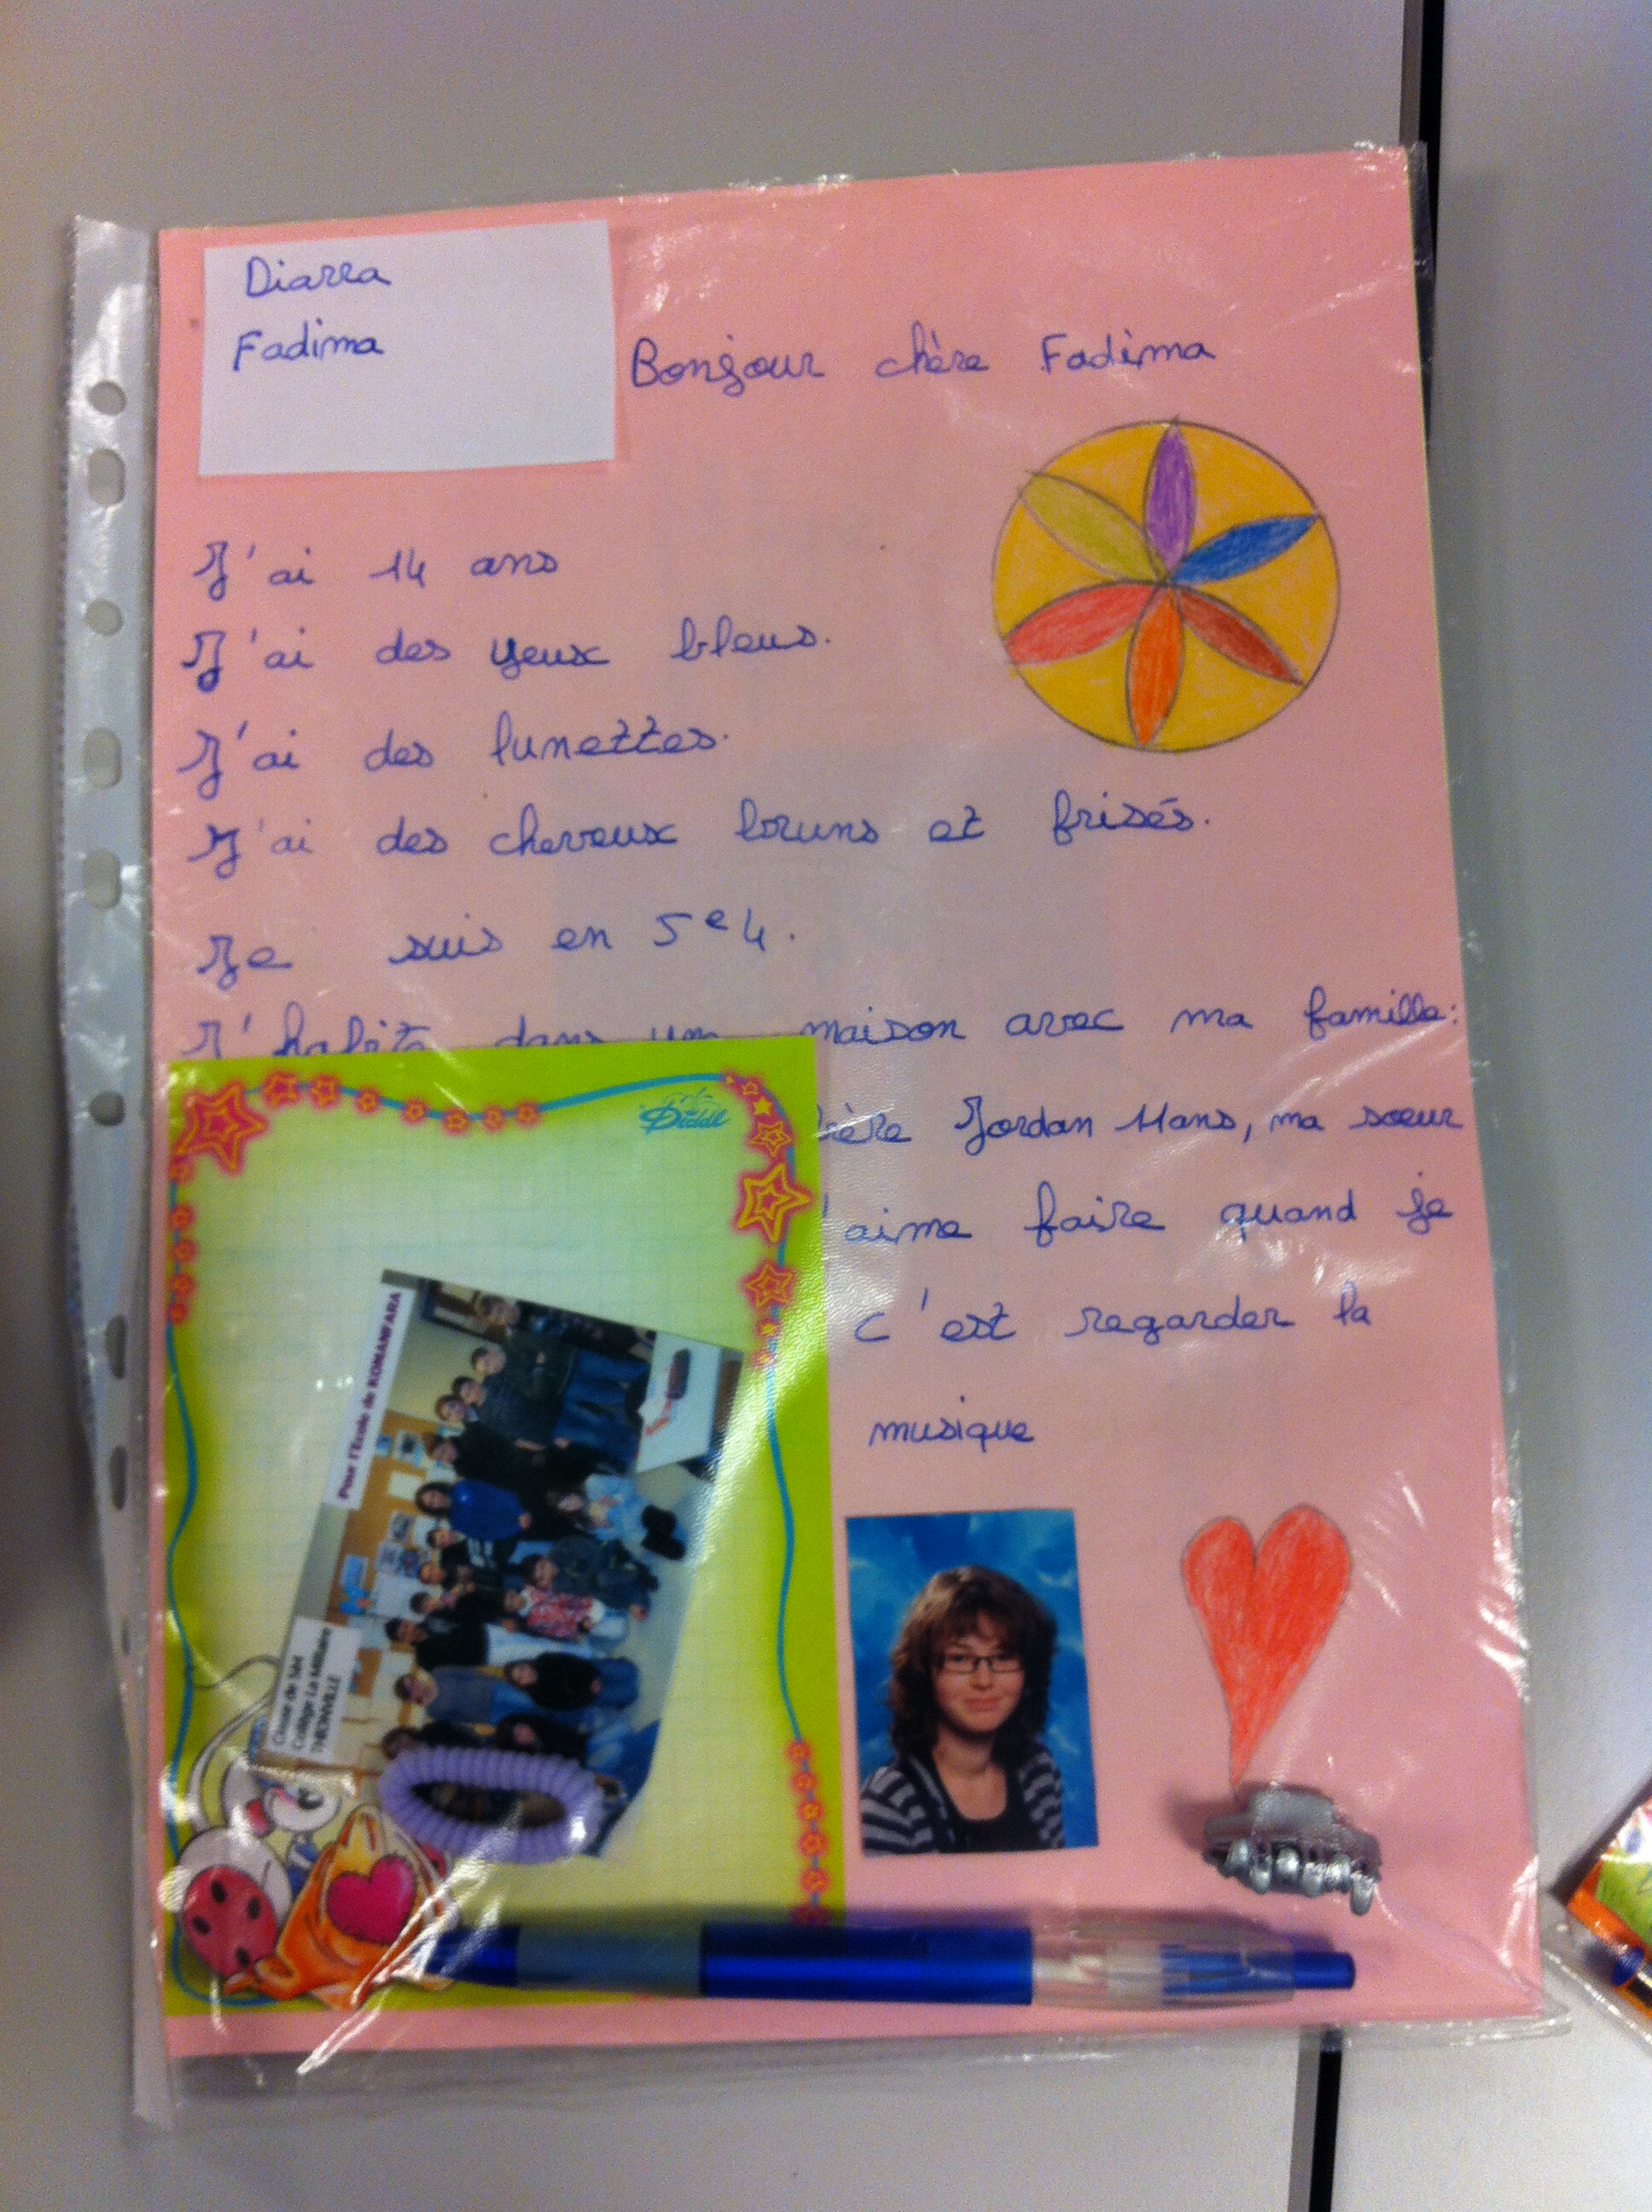 Diarra
Fadima
Bonjour chère Fadima
J'ai 14 ans
J'ai des yeux bleus.
J'ai des lunettes.
J'ai des cheveux bruns et frisés.
Je suis en 5e4.
J'habite dans un maison avec ma famille:
Jordan 11ans, ma sœur
'aime faire quand je
c'est regarder la
musique
Diddl
Pour l'Ecole de KOMANFARA
Classe de
Collège La Milliaire
THIONVILLE